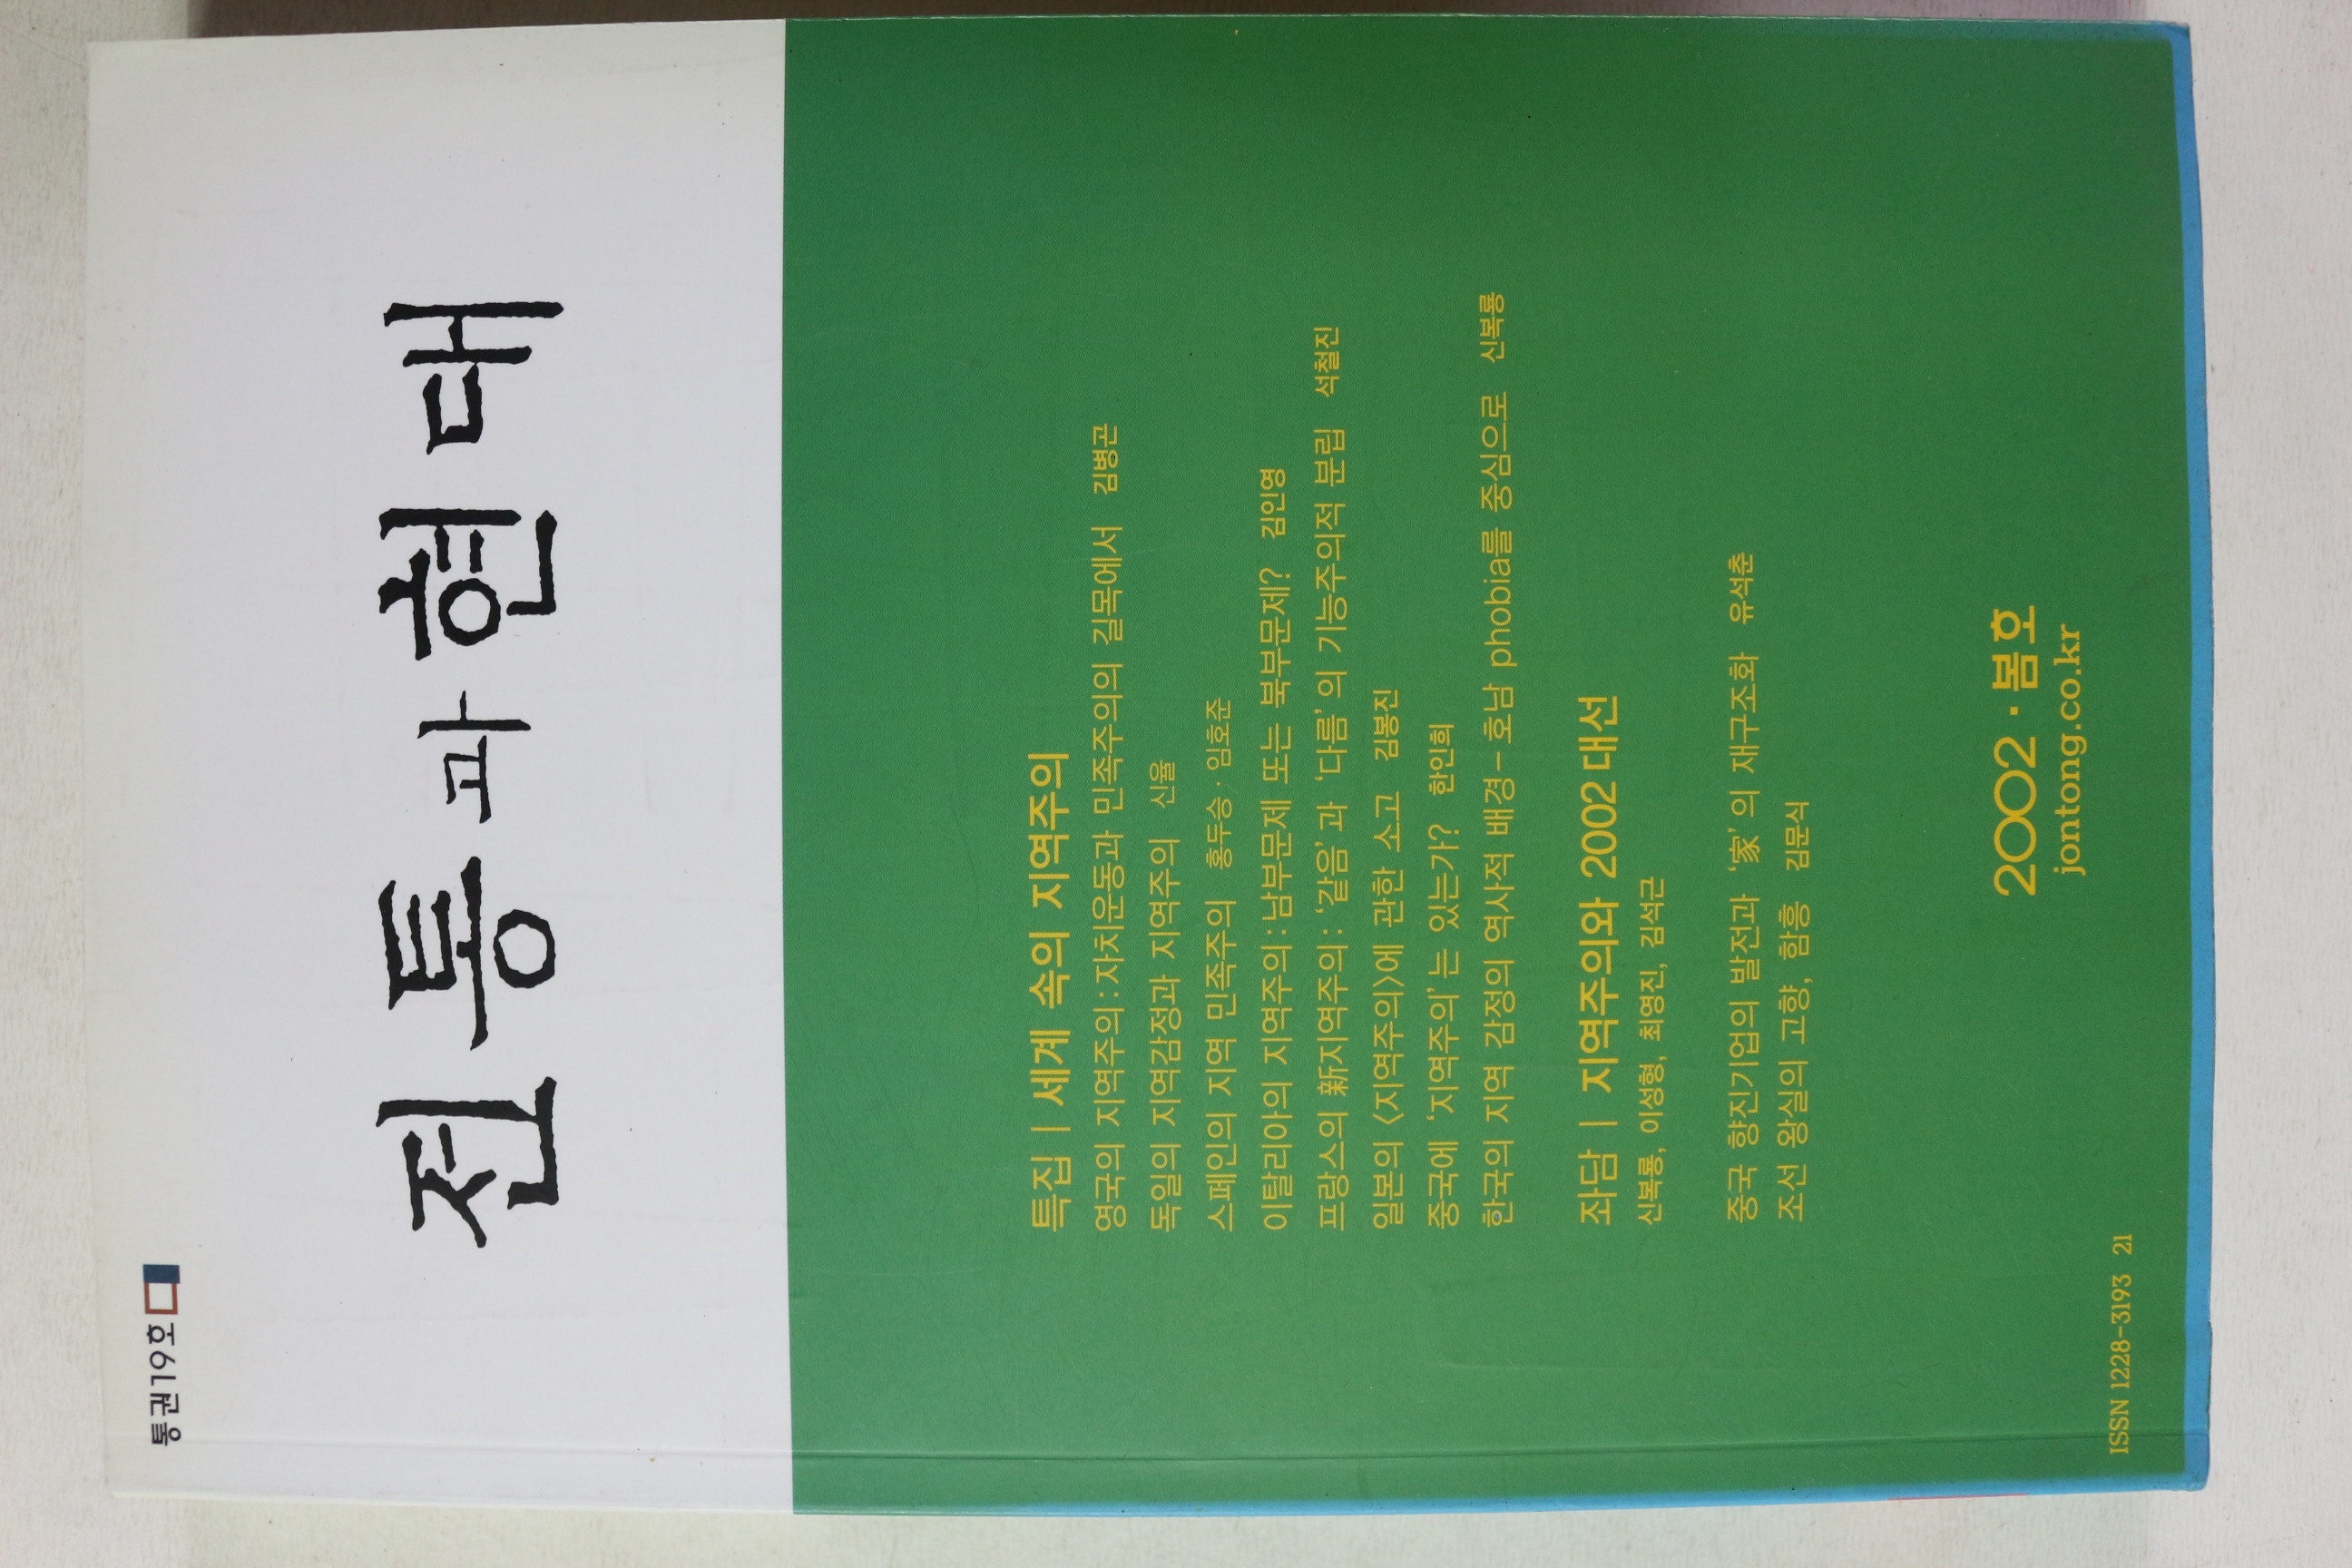 통권19호
전통과 현대
특집 | 세계 속의 지역주의
영국의 지역주의:자치운동과 민족주의의 길목에서 김병곤
독일의 지역감정과 지역주의 신율
스페인의 지역 민족주의 홍두승·임호준
이탈리아의 지역주의:남부문제 또는 북부문제? 김인영
프랑스의 新지역주의: '같음'과 '다름'의 기능주의적 분립 석철진
일본의 〈지역주의〉에 관한 소고 김봉진
중국에 '지역주의'는 있는가? 한인희
한국의 지역 감정의 역사적 배경-호남 phobia를 중심으로 신복룡
좌담 | 지역주의와 2002 대선
신복룡, 이성형, 최영진, 김석근
중국 향진기업의 발전과 '家'의 재구조화 유석춘
조선 왕실의 고향, 함흥 김문식
2002·봄호
jontong.co.kr
ISSN 1228-3193 21